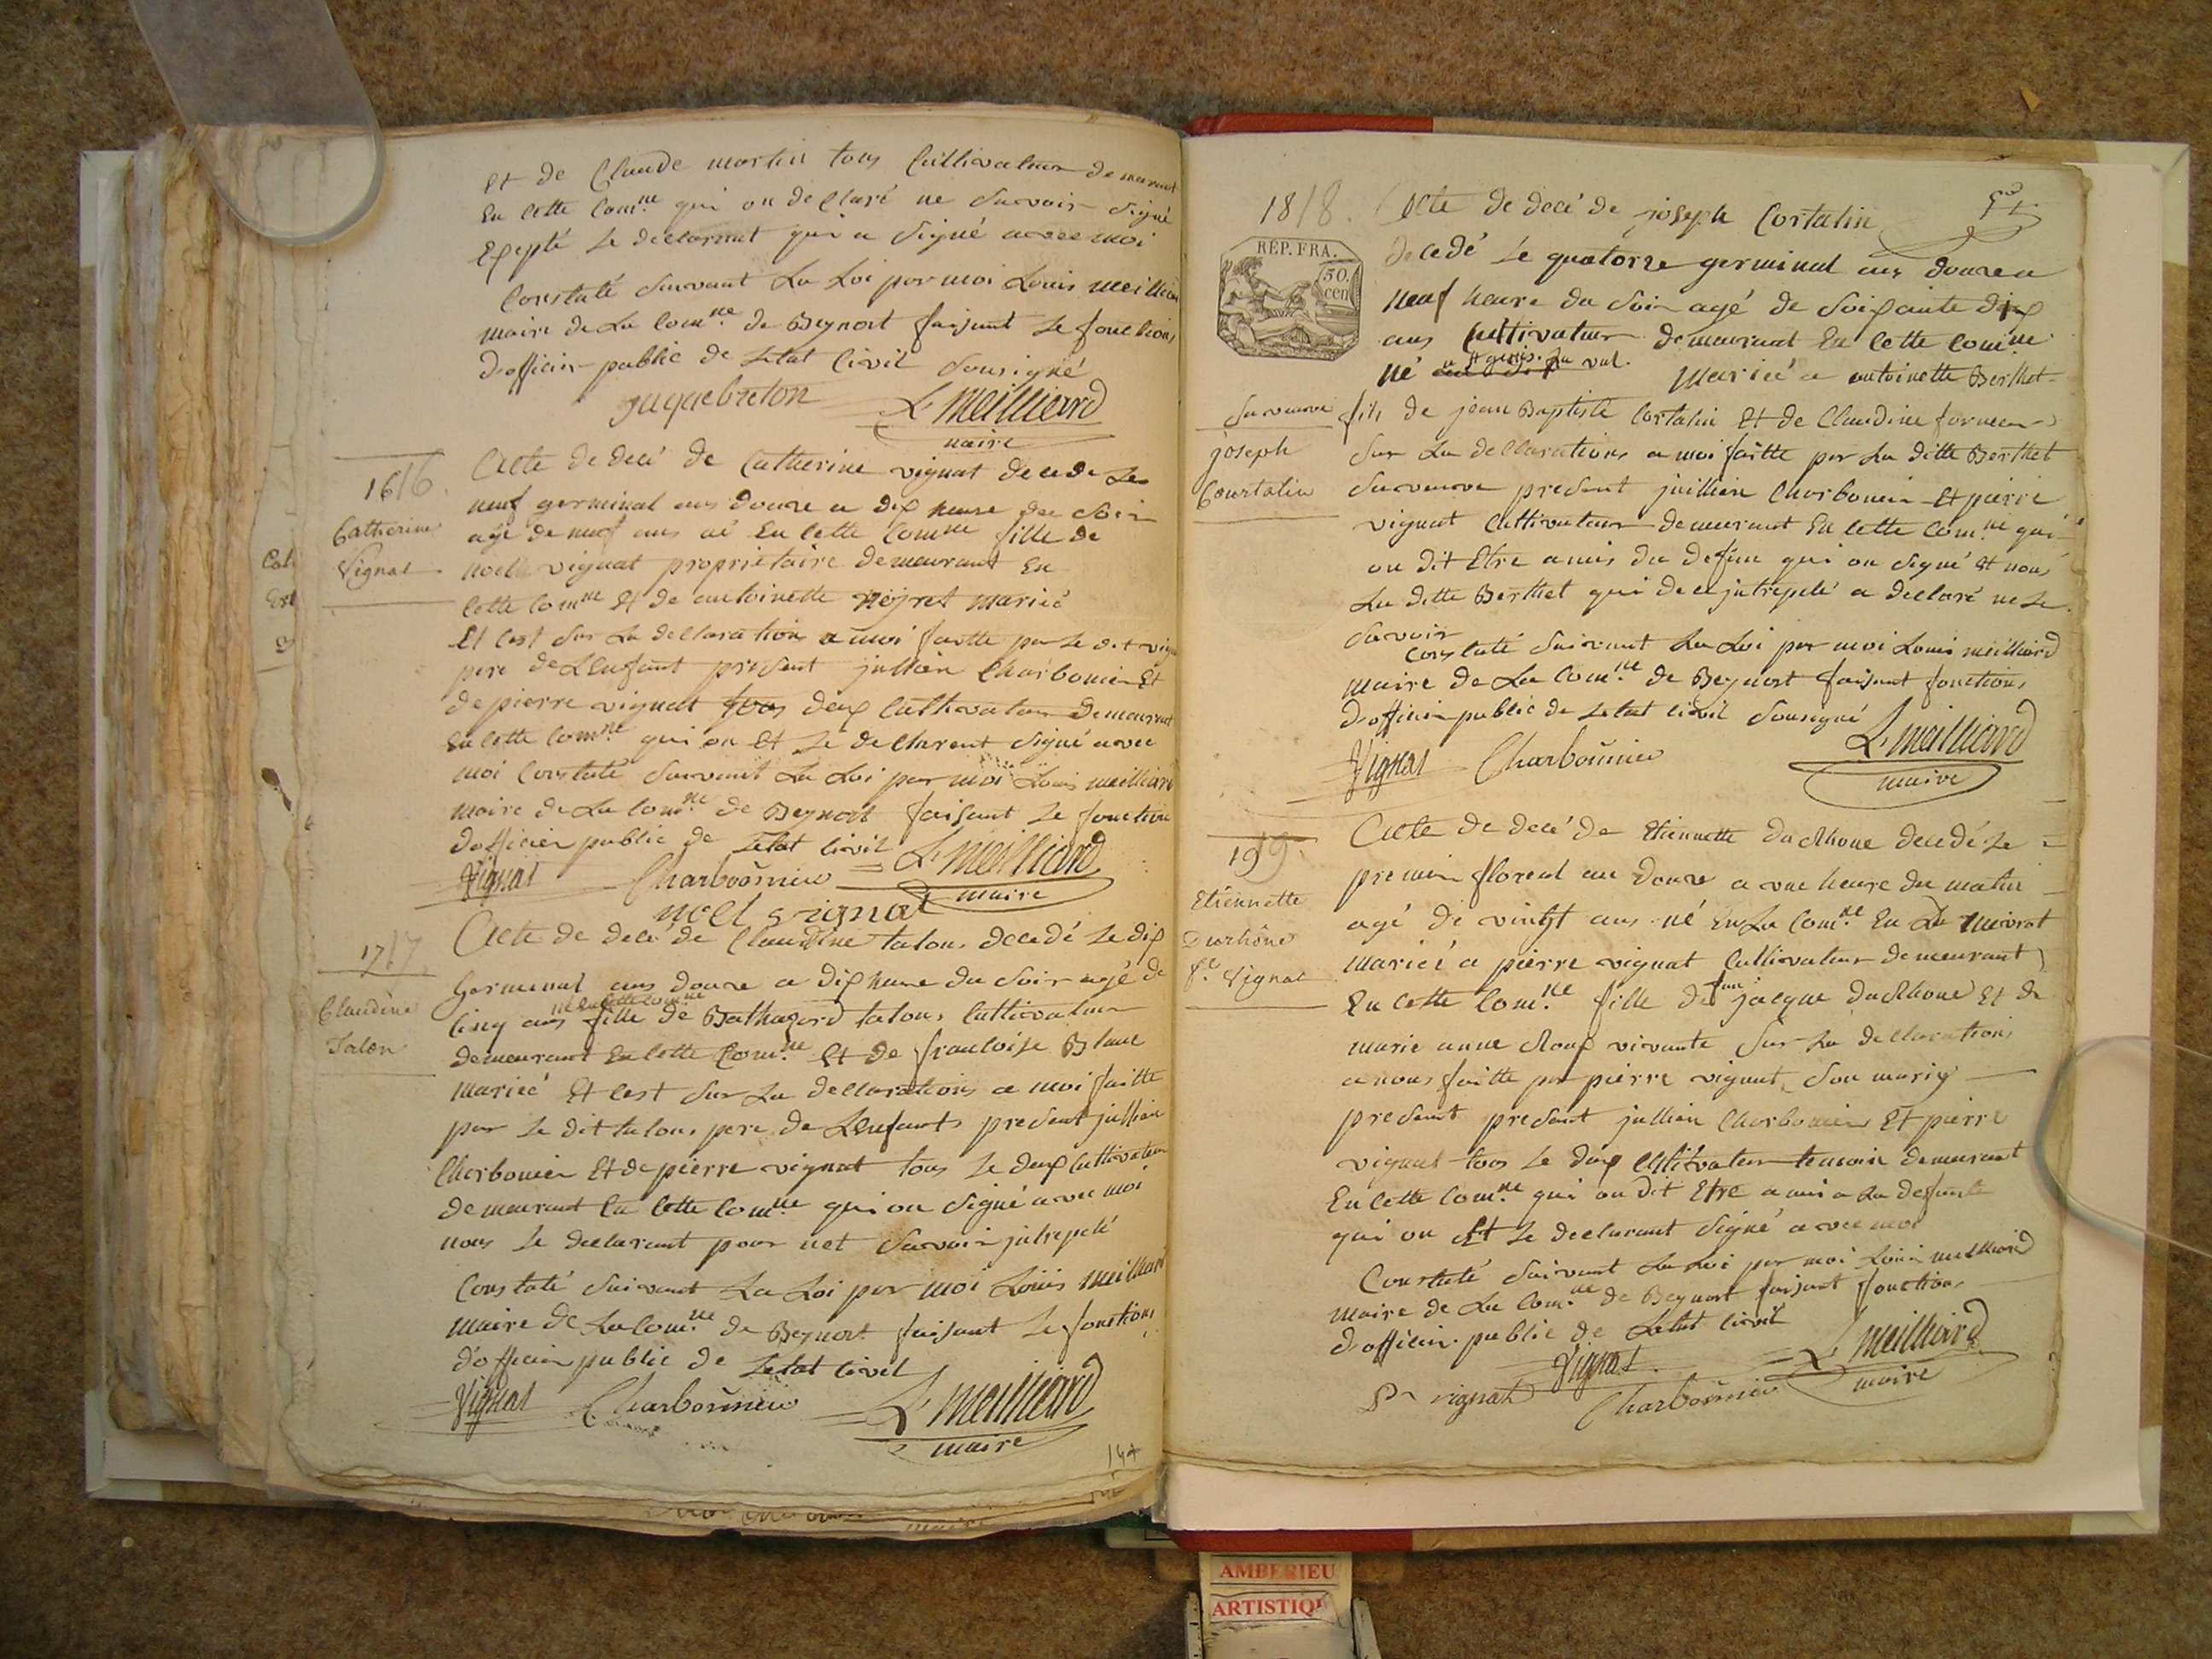 et de Claude martin tous Cultivateur demeurant
En Cette Com.ne qui on declaré ne Savoir Signé
Exepté Le declarant qui a Signé avec moi
Constaté Suivant La Loi par moi Louis meilliard
maire de La Com.ne de Beynost faisant Le fonctions
d'officier public de Letat Civil Sousigné
jaquebreton L. Meilliard
maire
1616.
Catherine
Vignat
Acte de decé de Catherine vignat decede Le
neuf germinal ans douze a dix heure du Soir
age de neuf ans né En Cette Comne fille de
noel vignat proprietaire demeurant En
Cette Comne Et de antoinette neyret marieé
Et Cest Sur La declaration a moi faitte par Le dit vigna
pere de Lenfant present jullien Charbonier Et
de pierre vignat tous deux Cultivateur demeurant
En Cette Com.ne qui on Et Le declarent Signé avec
moi Constaté Suivant La Loi par moi Louis meilliard
maire de La Com.ne de Beynost faisant Le fonction
dofficier public de Letat Civil L. Meilliard
Vignat Charbonnier maire
noel vignat
1717.
Claudine
Talon
Acte de decé de Claudine talon decedé Le dix
Germinal ans douze a dix heure du Soir agé de
né En Cette Com.ne
Cinq ans fille de Balthazard talon Cultivateur
demeurant En Cette Com.ne Et de francoise Blanc
marieé Et Cest Sur La declarations a moi faitte
par Le dit talon pere de Lenfants present jullien
Charbonier Et de pierre vignat tous Le deux Cultivateur
demeurant En Cette Com.ne qui on Signé avec moi
nous Le declarant pour net Savoir jntrepelé
Constaté Suivant La Loi par moi Louis Meilliard
maire de La Com.ne de Beynost faisant Le fonctions
d'officier public de Letat Civil
Vignat Charbonnier L. Meilliard
maire
144
1818. Acte de decé de joseph Cortalin
RÉP. FRA.
50.
cen
decedé Le quatorze germinal ans douze a
neuf heure du Soir agé de Soixante dix
ans Cultivateur demeurant En Cette Comne
né marieé a antoinette Berthet
joseph
Courtalin
fils de jean Baptiste Cortalin Et de Claudine
Sur La declarations a moi faitte par La ditte Berthet
Sa veuve present jullien Charbonier Et pierre
vignat Cultivateur demeurant En Cette Com.ne qui
on dit Etre amis du defun qui on Signé Et nous
La ditte Berthet qui de ce jntrepelé a declaré ne Le
Savoir
Constaté Suivant La Loi par moi Louis meilliard
maire de La Com.ne de Beynost faisant fonctions
dofficier public de Letat Civil Sousigné
Vignat Charbonnier L. Meilliard
maire
1919.
Etiennette
Durhône
f.e Vignat
Acte de decé de Etiennette du Rhone decedé Le
premier floreal an douze a une heure du matin
agé de vingt ans né En La Com.ne
marieé a pierre vignat Cultivateur demeurant
En Cette Com.ne fille de fun jacque du Rhone Et de
marie anne Roux vivante Sur La declarations
a nous faitte par pierre vignat Son mariy
present present jullien Charbonier Et pierre
vignat tous Le deux Cultivateur temoin demeurant
En Cette Com.ne qui on dit Etre ami a La defunte
qui on Et Le declarant Signé avec moi
Constaté Suivant La Loi par moi Louis meilliard
maire de La Com.ne de Beynost faisant fonctions
dofficier public de Letat Civil
Vignat L. Meilliard
Pr vignat Charbonnier maire
AMBERIEU
ARTISTIQU